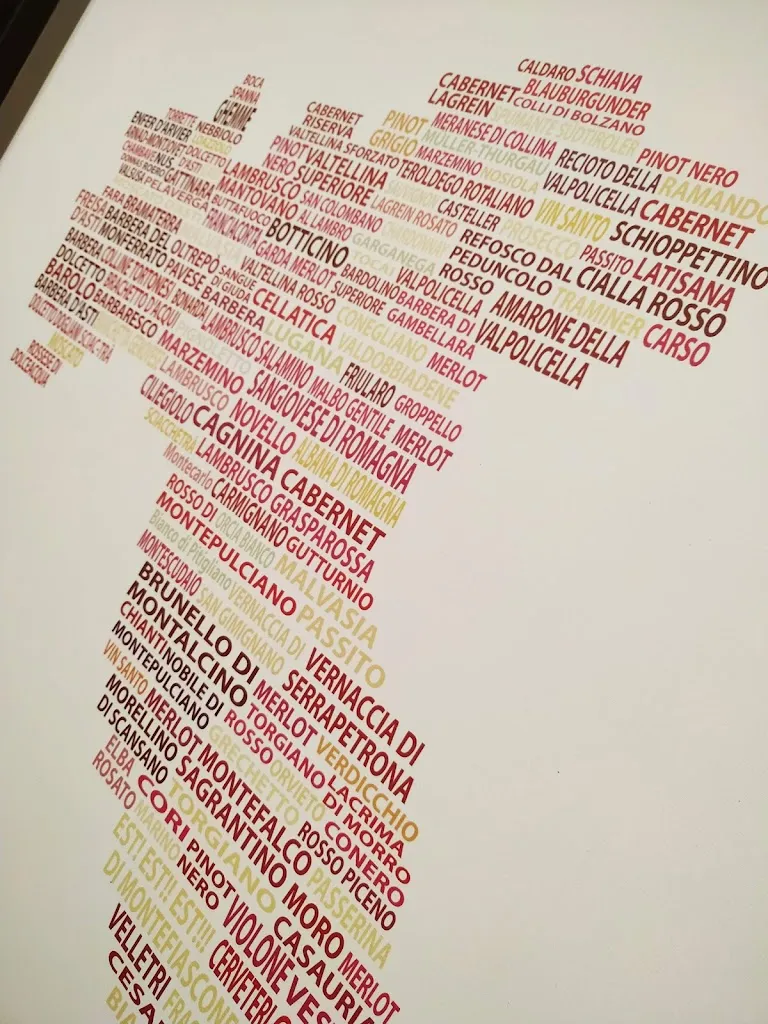 CALDARO SCHIAVA
CABERNET BLAUBURGUNDER
LAGREIN COLLI DI BOLZANO
BOCA
SPANNA
GHEMME
CABERNET RISERVA
PINOT GRIGIO
MERANESE DI COLLINA
SPUMANTE SÜDTIROLER
MÜLLER-THURGAU
RECIOTO DELLA VALPOLICELLA
PINOT NERO
RAMANDO
TORRETTE
ENFER D'ARVIER
NEBBIOLO
VALTELLINA SFORZATO
MARZEMINO NOSIOLA
TEROLDEGO ROTALIANO
VIN SANTO
CABERNET
SCHIOPPETTINO
PINOT NERO
VALTELLINA SUPERIORE
LAMBRUSCO MANTOVANO
SAN COLOMBANO AL LAMBRO
LAGREIN ROSATO
CASTELLER
PROSECCO
PASSITO
LATISANA
GATTINARA
PELAVERGA
BUTTAFUOCO
FRANCIACORTA
BOTTICINO
GARGANEGA
TOCAI
CHARDONNAY
REFOSCO DAL PEDUNCOLO ROSSO
CIALLA ROSSO
FARA
BRAMATERRA
FREISA D'ASTI
BARBERA DEL MONFERRATO
OLTREPÒ PAVESE
SANGUE DI GIUDA
GARDA MERLOT
BARDOLINO SUPERIORE
VALPOLICELLA
TRAMINER
CARSO
BARBERA
DOLCETTO
COLLINE TORTONESI
BONARDA
BARBERA
VALTELINA ROSSO
CELLATICA
BARBERA DI GAMBELLARA
AMARONE DELLA VALPOLICELLA
BAROLO
BARBARESCO
LUGANA
CONEGLIANO VALDOBBIADENE
MERLOT
BARBERA D'ASTI
MARZEMINO
LAMBRUSCO SALAMINO
FRIULARO
GROPPELLO
MOSCATO
ROSSESE DI DOLCEACQUA
LAMBRUSCO
SANGIOVESE DI ROMAGNA
MALBO GENTILE
MERLOT
CILIEGIOLO
NOVELLO
CAGNINA
ALBANA DI ROMAGNA
SCIACCHETRA
LAMBRUSCO GRASPAROSSA
CABERNET
Montecarlo
CARMIGNANO
GUTTURNIO
ROSSO DI MONTEPULCIANO
ORCIA BIANCO
MALVASIA
PASSITO
Bianco di Pitigliano
VERNACCIA DI SAN GIMIGNANO
MONTESCUDAIO
BRUNELLO DI MONTALCINO
VERNACCIA DI SERRAPETRONA
CHIANTI
NOBILE DI MONTEPULCIANO
MERLOT
VERDICCHIO
VIN SANTO
TORGIANO ROSSO
LACRIMA DI MORRO
MORELLINO DI SCANSANO
MERLOT
GRECHETTO
ORVIETO
CONERO
MONTEFALCO SAGRANTINO
ROSSO PICENO
ELBA ROSATO
CORI
TORGIANO
PASSERINA
MARINO
PINOT NERO
EST! EST!! EST!!! DI MONTEFIASCONE
MORO
CASAURIA
MERLOT
VIOLONE
VELLETRI
CERVETERI
CESA